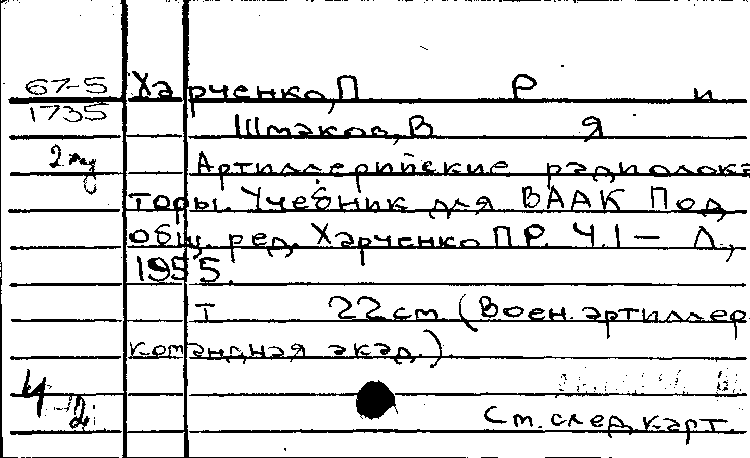 67-5 Харченко, П Р и
1735
Шмаков, В Я
Артиллерийские радиолока
торы. Учебник для ВААК Под
общ. ред. Харченко П.Р. Ч.1 — Л.,
1955.
т 22 см. (Воен. артиллер
командная акад.).
См. след. карт.